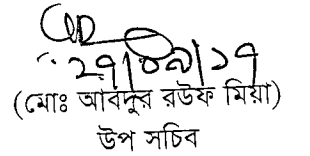 ২৭|৮|১৭
(মোঃ আবদুর রউফ মিয়া)
উপ সচিব